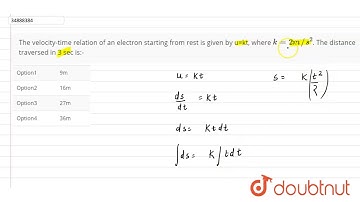 34888384
The velocity-time relation of an electron starting from rest is given by u=kt, where k = 2m/s². The distance
traversed in 3 sec is:-
Option1 9m
Option2 16m
Option3 27m
Option4 36m
u = kt
ds/dt = kt
ds = kt dt
∫ds = k∫t dt
s = k(t²/2)
doubtnut